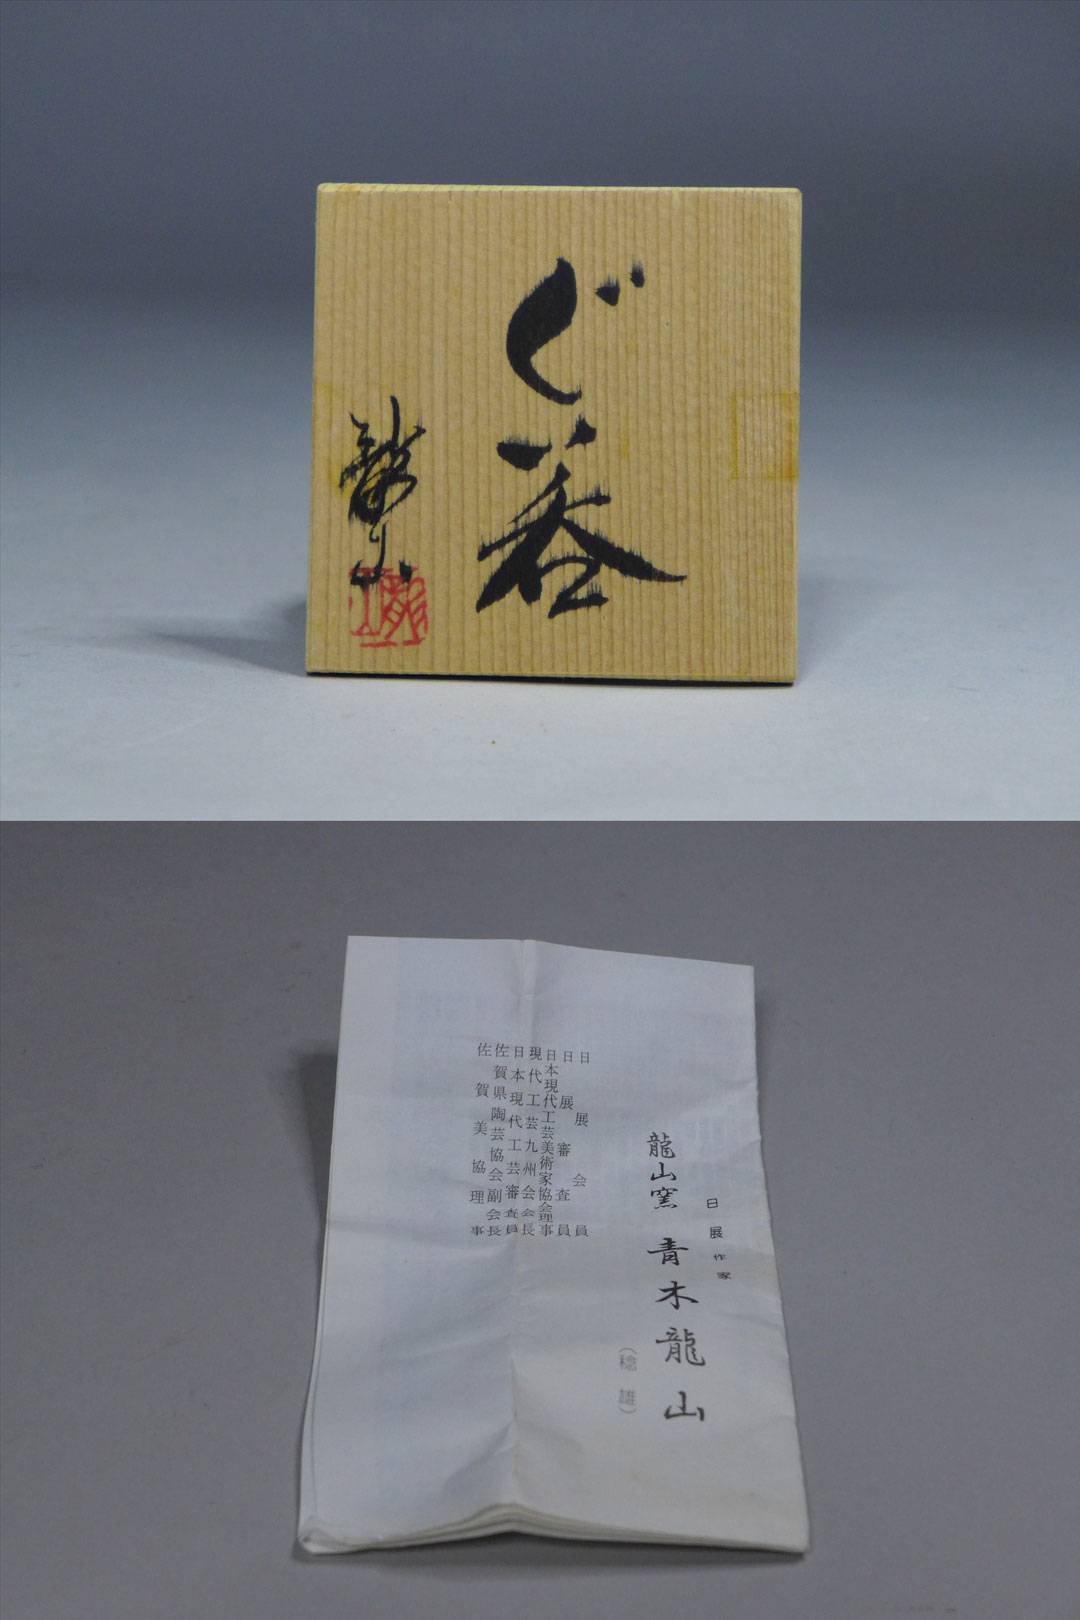 ぐい呑
龍山
龍山
日展作家
龍山窯 青木龍山
(稔雄)
日展会員
日展審査員
日本現代工芸美術家協会理事
現代工芸九州会会長
日本現代工芸審査員
佐賀県陶芸協会副会長
佐賀美協理事